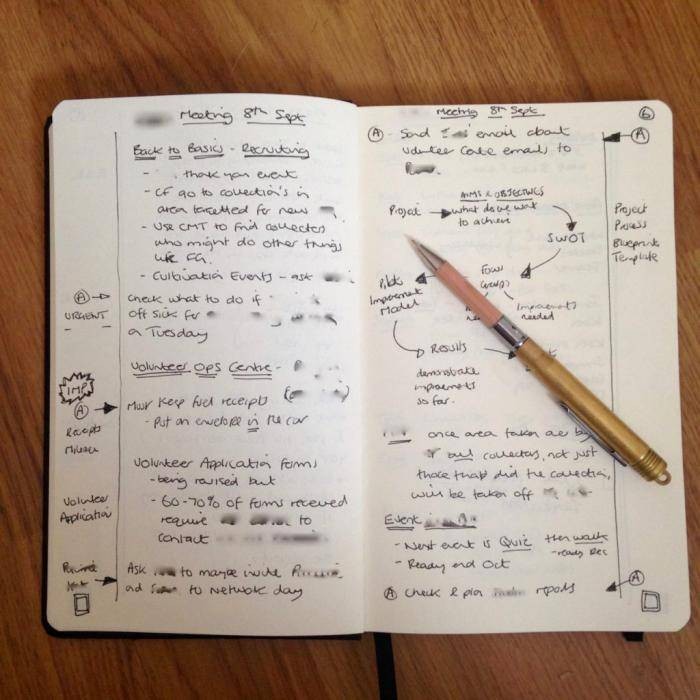 Meeting 8th Sept
Back to Basics - Recruiting
- thank you event
- CF go to collection's in
area targetted for new
- Use CMT to find collectors
who might do other things
like FG.
- Cultivation Events - ask
A
URGENT
Check what to do if
off sick for
a Tuesday
Volunteer Ops Centre -
IMP
A
Receipts
Mileage
Must keep fuel receipts
- Put an envelope in the car
Volunteer Application forms
- being revised but
Volunteer
Application
- 60-70% of forms received
require to
contact
Ask to maybe invite
and to Network day
Meeting 8th Sept
6
A - Send email about
A
Volunteer Core emails to
AIMS & OBJECTIVES
Project what do we want
to achieve
SWOT
Project
Process
Blueprint
Template
Focus
Groups
Pilot
Improvement
Model
Improvements
needed
Results
demonstrate
improvements
so far.
once area taken over by
but collectors, not just
those that did the collection,
will be taken off
Event
- Next event is Quiz then walk
- ready Dec
- Ready end Oct
A Check & plan reports
A